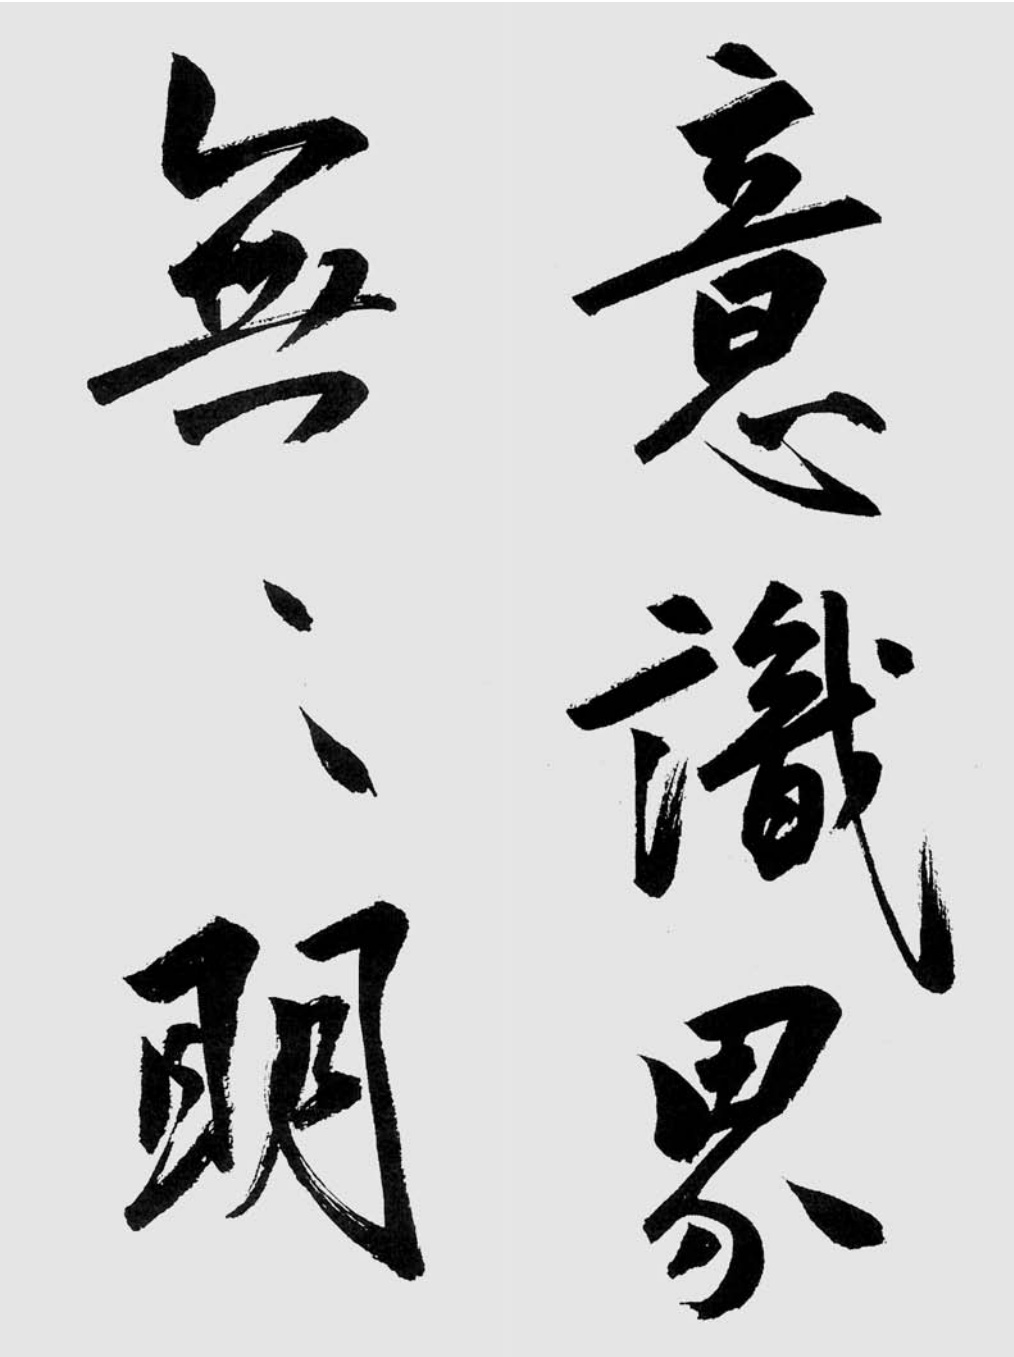 意識界
無〻明